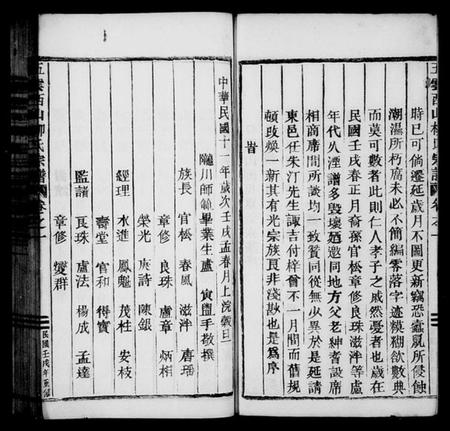 五雲西山柳氏宗譜 卷之一
時已可倘遷延歲月不圖更新竊恐蠹鼠所侵蝕
潮濕所朽腐未必不簡編零落字迹糢糊欲數典
而莫可數者此則仁人孝子之戚然憂者也歲在
民國壬戌春正月裔孫官松章修良珠滋泮等慮
年代久湮譜多毀壞廼邀同地方父老紳耆設席
相商席間所議均一致贊同從無少異於是延請
東邑任朱汀先生諏吉付梓曾不一月間而舊規
頓改煥一新其有光宗族良非淺尠也是爲序
旹
中華民國十一年歲次壬戌孟春月上浣穀旦
師範畢業生盧 寅團手敬撰
族長 官松 春風 滋泮 唐璠
章修 良珠 盧章 炳相
榮光 庚詩 陳銀
經理 水進 鳳魁 茂柱 安枝
壽堂 官和 得寶
監譜 良珠 盧法 楊成 孟達
章修 燮群
五雲西山柳氏宗譜 卷之一
民國壬戌年重修